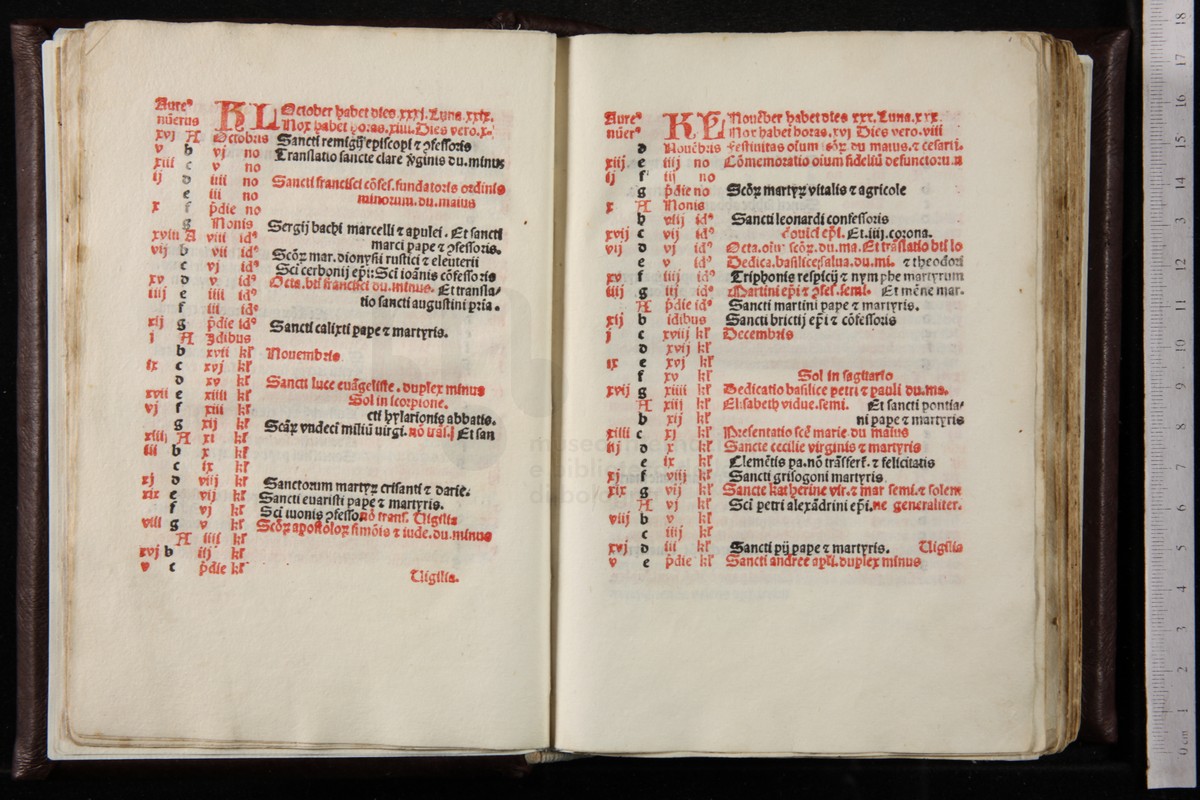 Aureꝰ KL October habet dies .xxxj. Luna .xxix.
nūerus Nox habet horas .xiiii. Dies vero .x.
xvj A Octobris Sancti remigij episcopi ⁊ ꝯfessoris
v b vj no Translatio sancte clare v̄ginis du. minus
xiii c v no
ij d iiii no Sancti francisci cōfes. fundatoris ordinis
e iii no minorum. du. maius
x f p̄die no
g Nonis Sergij bachi marcelli ⁊ apulei. Et sancti
xviii A viii idꝰ marci pape ⁊ ꝯfessoris.
vij b vii idꝰ Scōꝝ mar. dionysii rustici ⁊ eleuterii
c vj idꝰ Sci cerbonij ep̄i: Sci ioānis cōfessoris
xv d v idꝰ Octa. bti francisci du. minus. Et transla-
iiij e iiii idꝰ tio sancti augustini p̄ria.
f iii idꝰ
xij g p̄die idꝰ Sancti calixti pape ⁊ martyris.
i A Idibus
b xvii kl̄ Nouembris
ix c xvj kl̄
d xv kl̄ Sancti luce euāgeliste. duplex minus
xvii e xiiii kl̄ Sol in scorpione.
vj f xiii kl̄ cti hylarionis abbatis.
g xij kl̄ Scāꝝ vndeci miliū uirgi. Et san
xiiij A xi kl̄
iii b x kl̄
c ix kl̄
xj d viij kl̄ Sanctorum martyꝝ crisanti ⁊ darie.
xix e vij kl̄ Sancti euaristi pape ⁊ martyris.
f vj kl̄ Sci iuonis ꝯfesso. nō trans. Uigilia
viii g v kl̄ Scōꝝ apostoloꝝ simōis ⁊ iude. du. minus
A iiij kl̄
xvj b iij kl̄
v c p̄die kl̄ Uigilia.
Aureꝰ KL Nouēber habet dies xxx. Luna. xxx
nūerꝰ Nox habet horas. xvj Dies vero. viii
d Nouēbris Festiuitas oīum scōꝝ du maius. ⁊ cesarii.
xiij. e iiij no Cōmemoratio oium fideliū defunctoru.
ij f iij no
g p̄die no Scōꝝ martyꝝ vitalis ⁊ agricole
x A Nonis
b viij idꝰ Sancti leonardi confessoris
xvij c vij idꝰ ep̄i. Et. iiij. corona.
vij d vj idꝰ Octa. oiuꝫ scōꝝ. du. ma. Et trāslatio bti lo
e v idꝰ Dedica. basilice salua. du. mi. ⁊ theodori
xv f iiij idꝰ Triphonis respicij ⁊ nymphe martyrum
iiij g iij idꝰ Martini ep̄i ⁊ ꝯfes. semi. Et mēne mar.
A p̄die idꝰ Sancti martini pape ⁊ martyris.
xij b idibus Sancti brictij ep̄i ⁊ cōfessoris
j c xviij kl̄ Decembris
d xvij kl̄
ix e xvj kl̄
f xv kl̄ Sol in sagitario
xvij g xiiii kl̄ Dedicatio basilice petri ⁊ pauli du. ma.
A xiij kl̄ Elisabeth vidue. semi. Et sancti pontia-
b xij kl̄ ni pape ⁊ martyris
xiiii c xj kl̄ Presentatio scē marie. du maius
iij d x kl̄ Sancte cecilie virginis ⁊ martyris
e ix kl̄ Clemētis pa. nō trāsferꝶ. ⁊ felicitatis
xj f viij kl̄ Sancti grisogoni martyris
xix g vij kl̄ Sancte katherine vir. ⁊ mar semi. ⁊ solem
A vj kl̄ Sci petri alexādrini ep̄i. ne generaliter.
viij b v kl̄
c iiij kl̄
xvj d iii kl̄ Sancti pij pape ⁊ martyris. Uigilia
v e p̄die kl̄ Sancti andree ap̄li. duplex minus